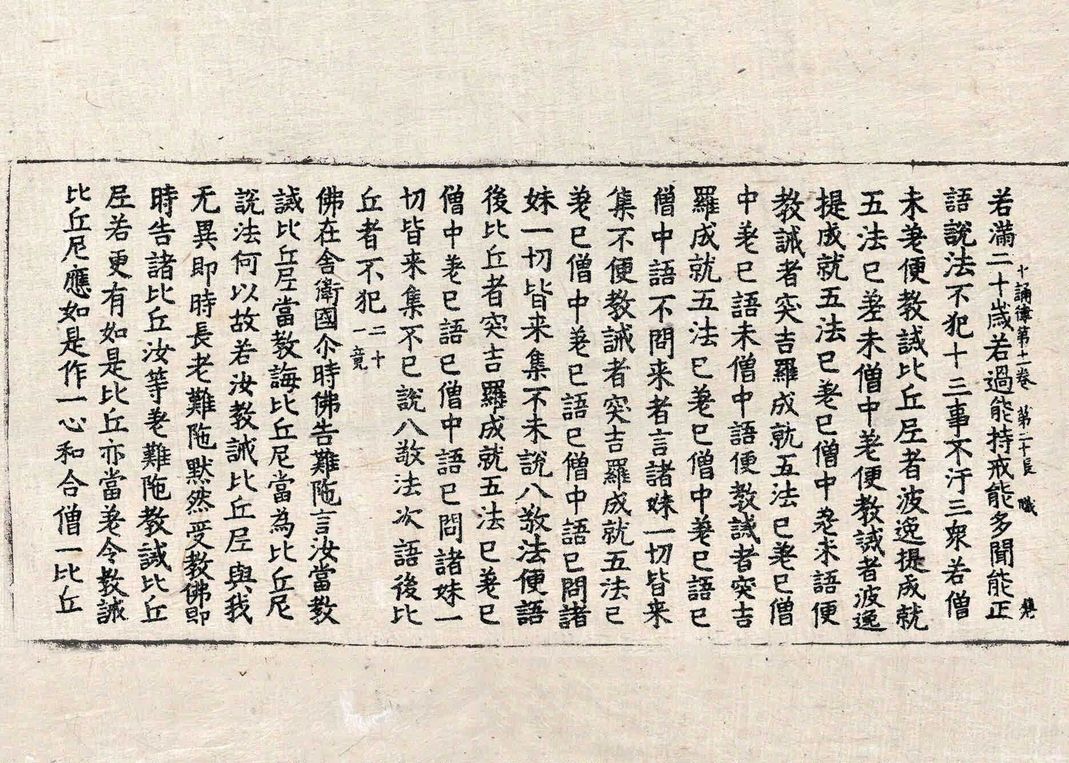 若滿二十歲若過能持戒能多聞能正
十誦律第十一卷 第二十張 職
語說法不犯十三事不汙三衆若僧
未差便教誡比丘尼者波逸提成就
五法已差未僧中差便教誡者波逸
提成就五法已差已僧中差未語便
教誡者突吉羅成就五法已差已僧
中差已語未僧中語便教誡者突吉
羅成就五法已差已僧中差已語已
僧中語不問来者言諸妹一切皆来
集不便教誡者突吉羅成就五法已
差已僧中差已語已僧中語已問諸
妹一切皆来集不未說八敬法便語
後比丘者突吉羅成就五法已差已
僧中差已語已僧中語已問諸妹一
切皆来集不已說八敬法次語後比
丘者不犯二十一竟
佛在舍衛國尒時佛告難陁言汝當教
誡比丘尼當教誨比丘尼當為比丘尼
說法何以故若汝教誡比丘尼與我
无異即時長老難陁默然受教佛即
時告諸比丘汝等差難陁教誡比丘
尼若更有如是比丘亦當差令教誡
比丘尼應如是作一心和合僧一比丘